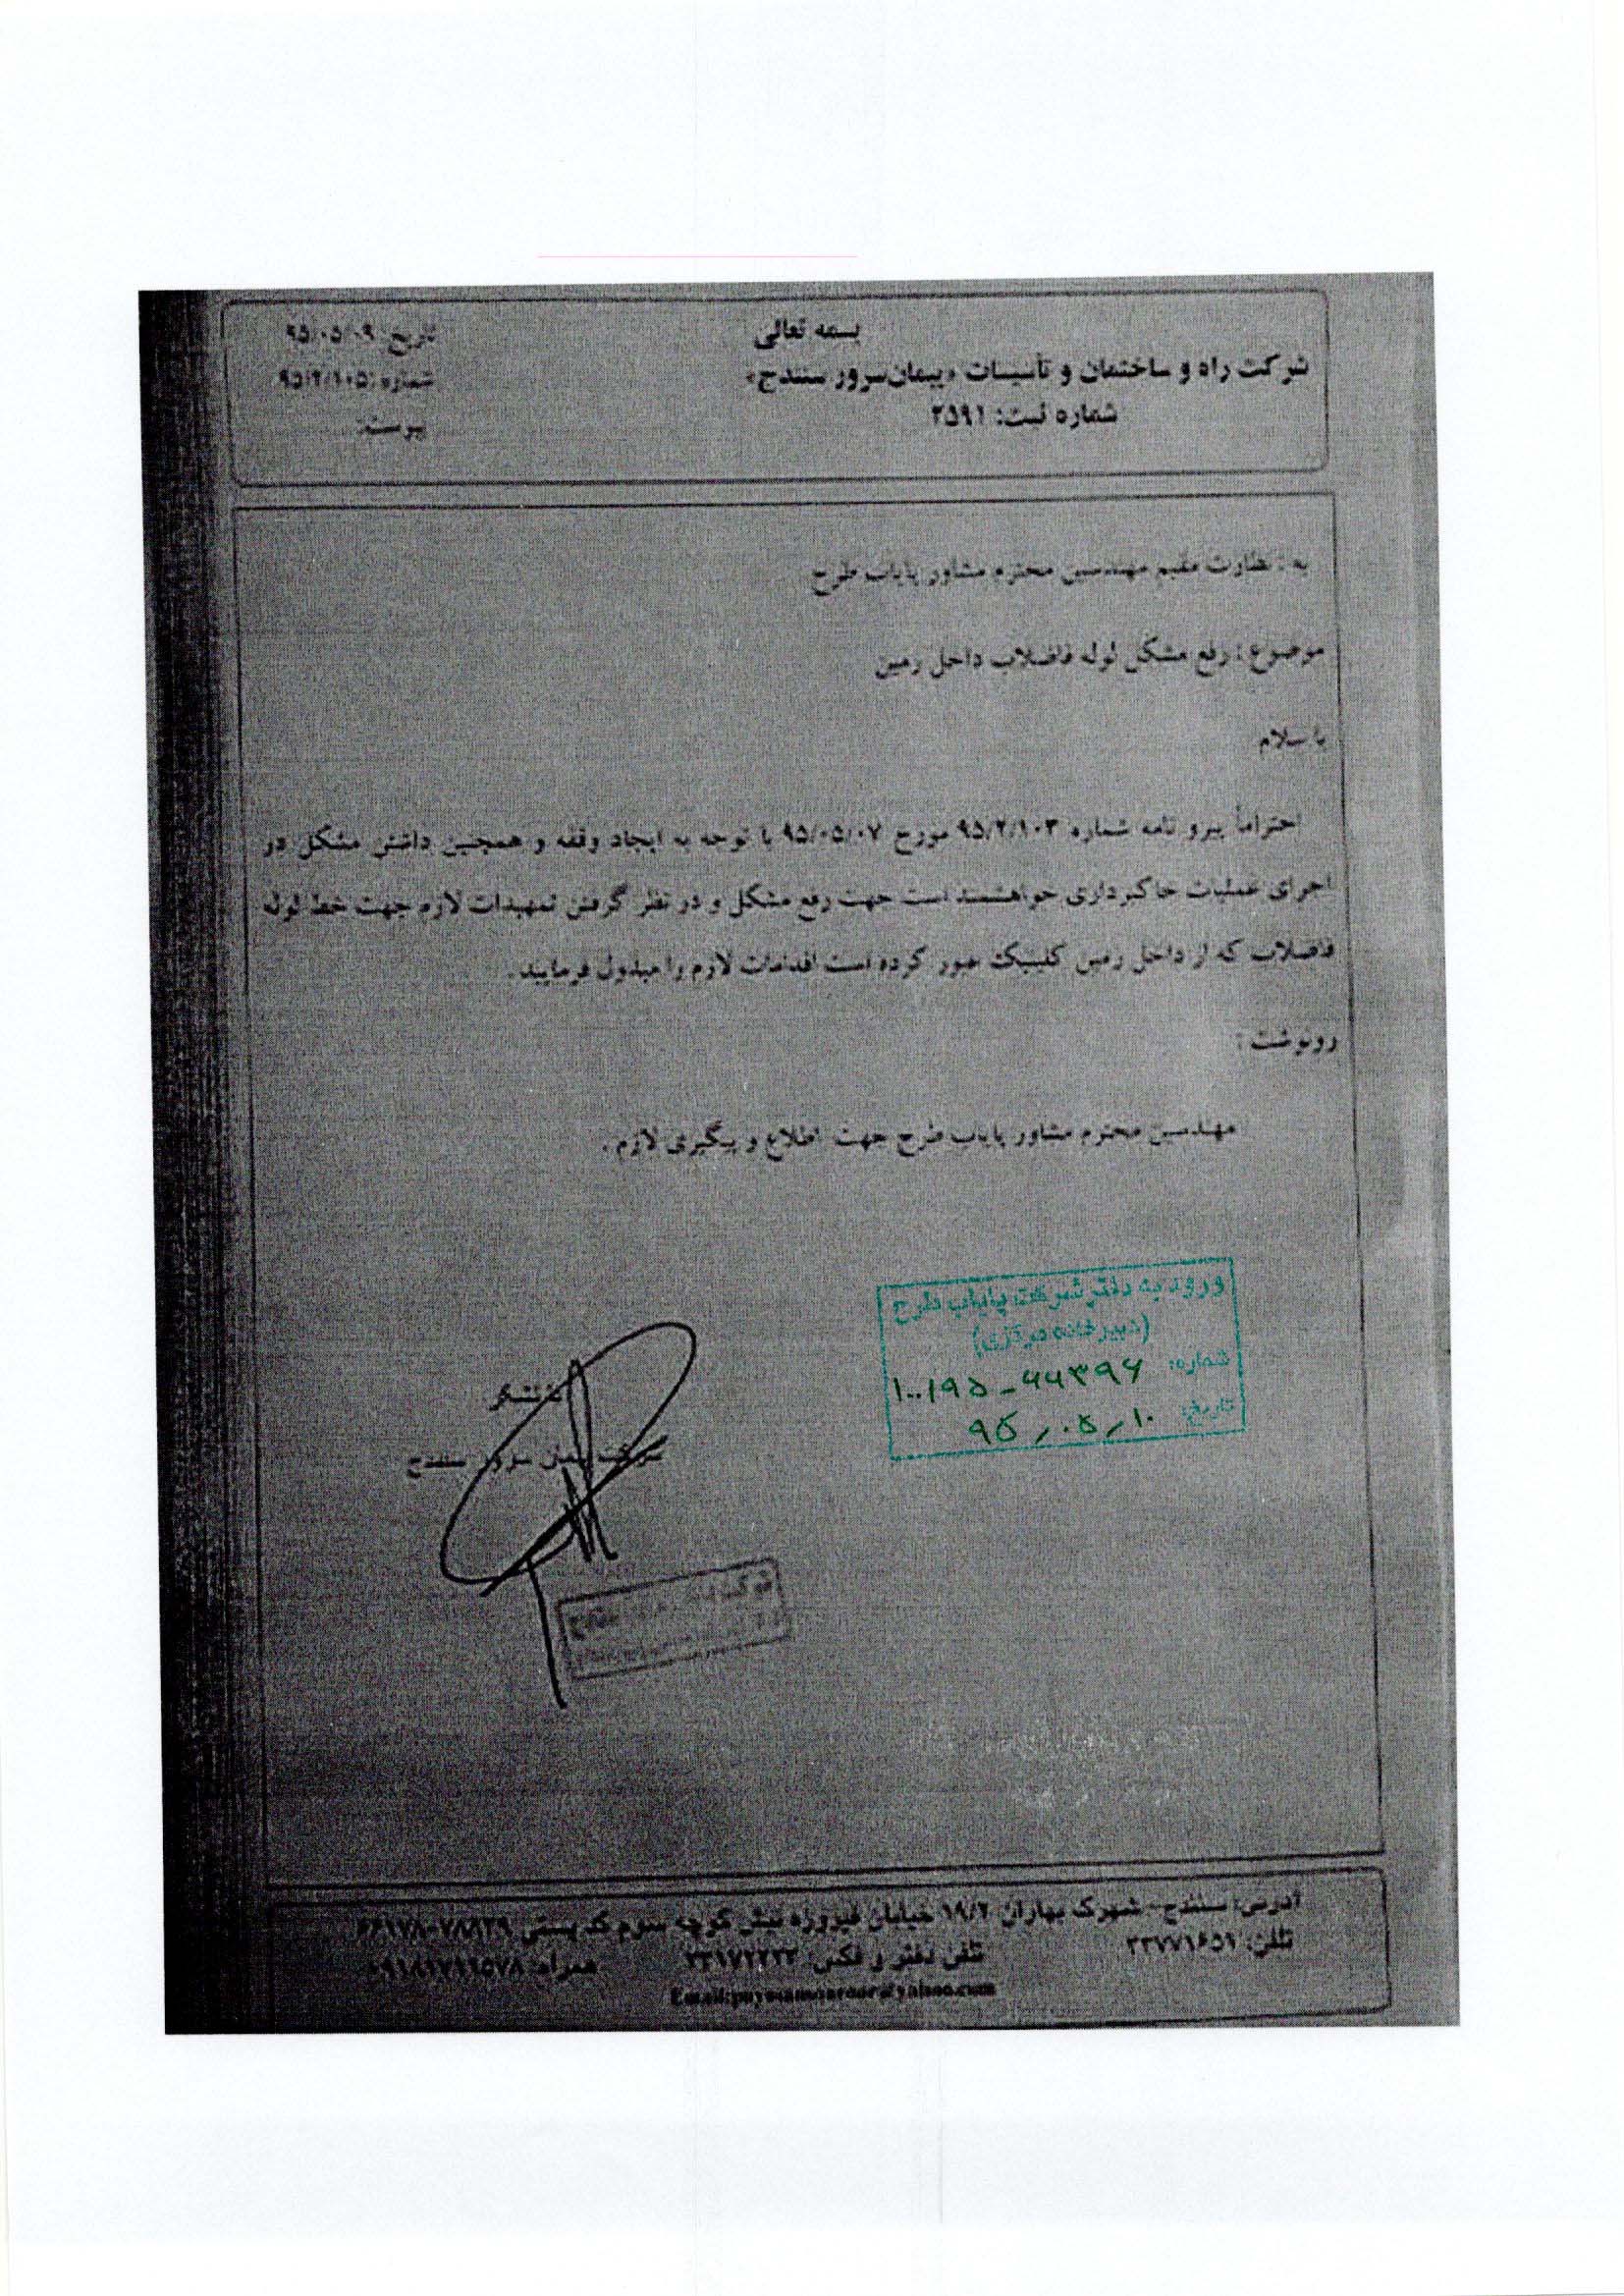 بسمه تعالی
شرکت راه و ساختمان و تأسیسات «پیمان‌سرور سنندج»
شماره ثبت: ۲۵۹۱
تاریخ: ۹۵/۰۵/۰۹
شماره: ۹۵/۲/۱۰۵
پیوست:
به : نظارت مقیم مهندسین محترم مشاور پایاب طرح
موضوع : رفع مشکل لوله فاضلاب داخل زمین
با سلام
احتراماً پیرو نامه شماره ۹۵/۲/۱۰۳ مورخ ۹۵/۰۵/۰۷ با توجه به ایجاد وقفه و همچنین داشتن مشکل در
اجرای عملیات خاکبرداری خواهشمند است جهت رفع مشکل و در نظر گرفتن تمهیدات لازم جهت خط لوله
فاضلاب که از داخل زمین کلینیک عبور کرده است اقدامات لازم را مبذول فرمایید .
رونوشت :
مهندسین محترم مشاور پایاب طرح جهت اطلاع و پیگیری لازم .
ورود به دفتر شرکت پایاب طرح
(دبیرخانه مرکزی)
شماره: ۱۰۰/۹۵-۶۶۳۹۶
تاریخ: ۹۵/۰۵/۱۰
باتشکر
شرکت پیمان سرور سنندج
آدرس: سنندج- شهرک بهاران ۱۹/۲ خیابان فیروزه نبش کوچه سوم کد پستی
تلفن: ۳۳۷۷۱۶۵۹ تلفن دفتر و فکس: ۳۳۱۷۲۲۲۲ همراه: